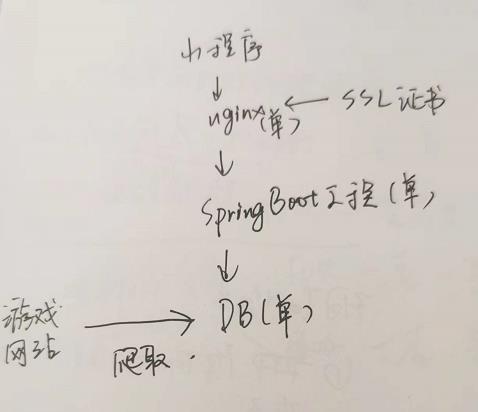 小程序
nginx(单) ← SSL证书
SpringBoot工程(单)
DB(单)
游戏
网站
爬取